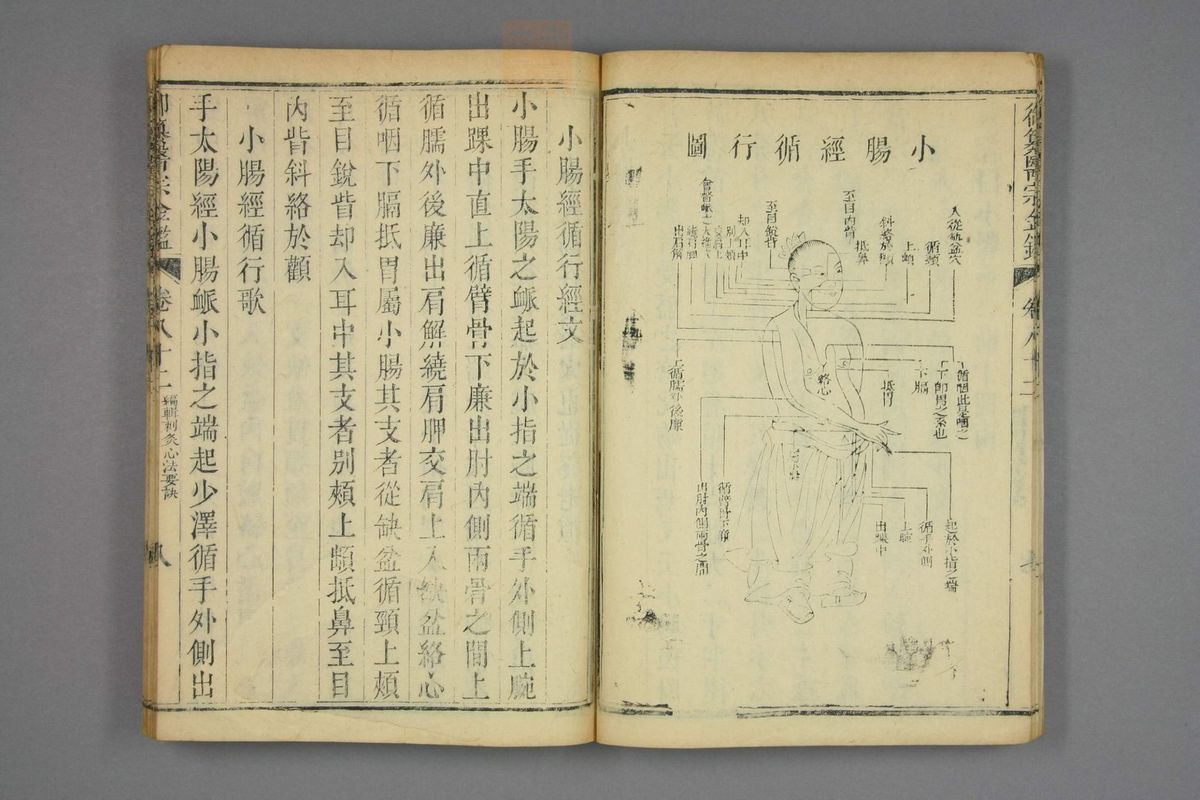 小腸經循行圖
入從缺盆穴
循頸
上頰
斜絡於顴
抵鼻
至目內眥
至目銳眥
却入耳中
別上頰
交肩上
繞肩胛
出肩解
絡心
循咽此是咽之
下即胃之系也
下膈
抵胃
上循臑外後廉
循臂骨下廉
出肘內側兩骨之間
起於小指之端
循手外側
上腕
出踝中
小腸經循行經文
小腸手太陽之脈起於小指之端循手外側上腕
出踝中直上循臂骨下廉出肘內側兩骨之間上
循臑外後廉出肩解繞肩胛交肩上入缺盆絡心
循咽下膈抵胃屬小腸其支者從缺盆循頸上頰
至目銳眥却入耳中其支者別頰上䪼抵鼻至目
內眥斜絡於顴
小腸經循行歌
手太陽經小腸脈小指之端起少澤循手外側出
御纂醫宗金鑑
卷八十二
編輯刺灸心法要訣
八